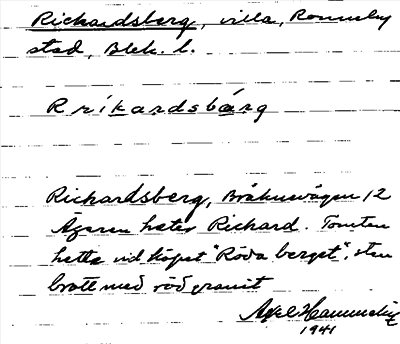 Richardsberg, villa, Ronneby
stad, Blek. l.
Rríkardsbärg
Richardsberg, Bräknevägen 12
Ägaren heter Richard. Tomten
hette vid köpet "Röda berget", sten
brott med röd granit
Axel
1941